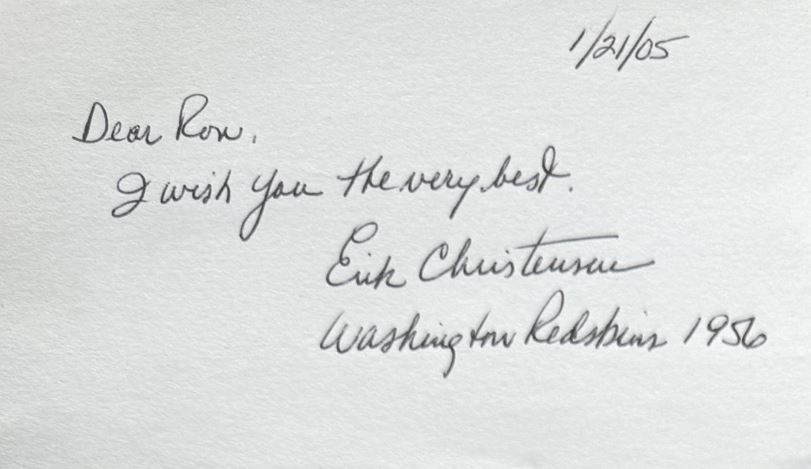 1/21/05
Dear Ron,
I wish you the very best.
Erik Christensen
Washington Redskins 1956